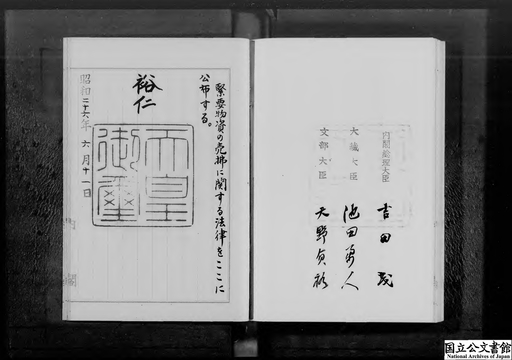 緊要物資の売拂に関する法律をここに
公布する。
裕仁
天皇
御璽
昭和二十六年 六月十一日
内閣
内閣総理大臣 吉田茂
大蔵大臣 池田勇人
文部大臣 天野貞祐
国立公文書館
National Archives of Japan